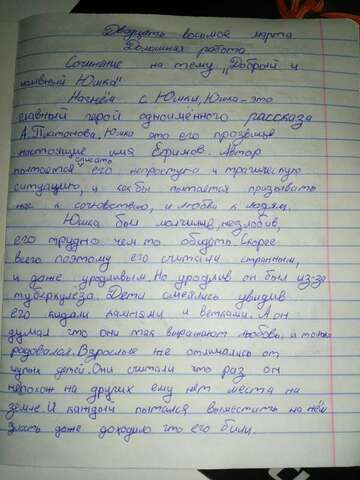 Двадцать восьмое марта
Домашняя работа.
Сочинение на тему „Добрый и
наивный Юшка"
Начнём с Юшки, Юшка - это
главный герой одноимённого рассказа
А. Платонова, Юшка это его прозвище
настоящие имя Ефимов. Автор
пытается описать его непростую и трагическую
ситуацию, и как бы пытается призывать
нас к сочювствию, и любви к людям.
Юшка был молчилив, незлобив,
его трудно чем то обидеть. Скорее
всего поэтому его считали странным,
и даже уродливым. Но уродлив он был из-за
туберкулеза. Дети смеялись увидив
его кидали камнями и ветками. А он
думал что они так выражают любовь, и только
радовался. Взрослые же отличались от
чужих детей. Они считали что раз он
непохож на других ему нет места на
земле. И каждый пытался выместить на нём
злость даже доходило что его били.